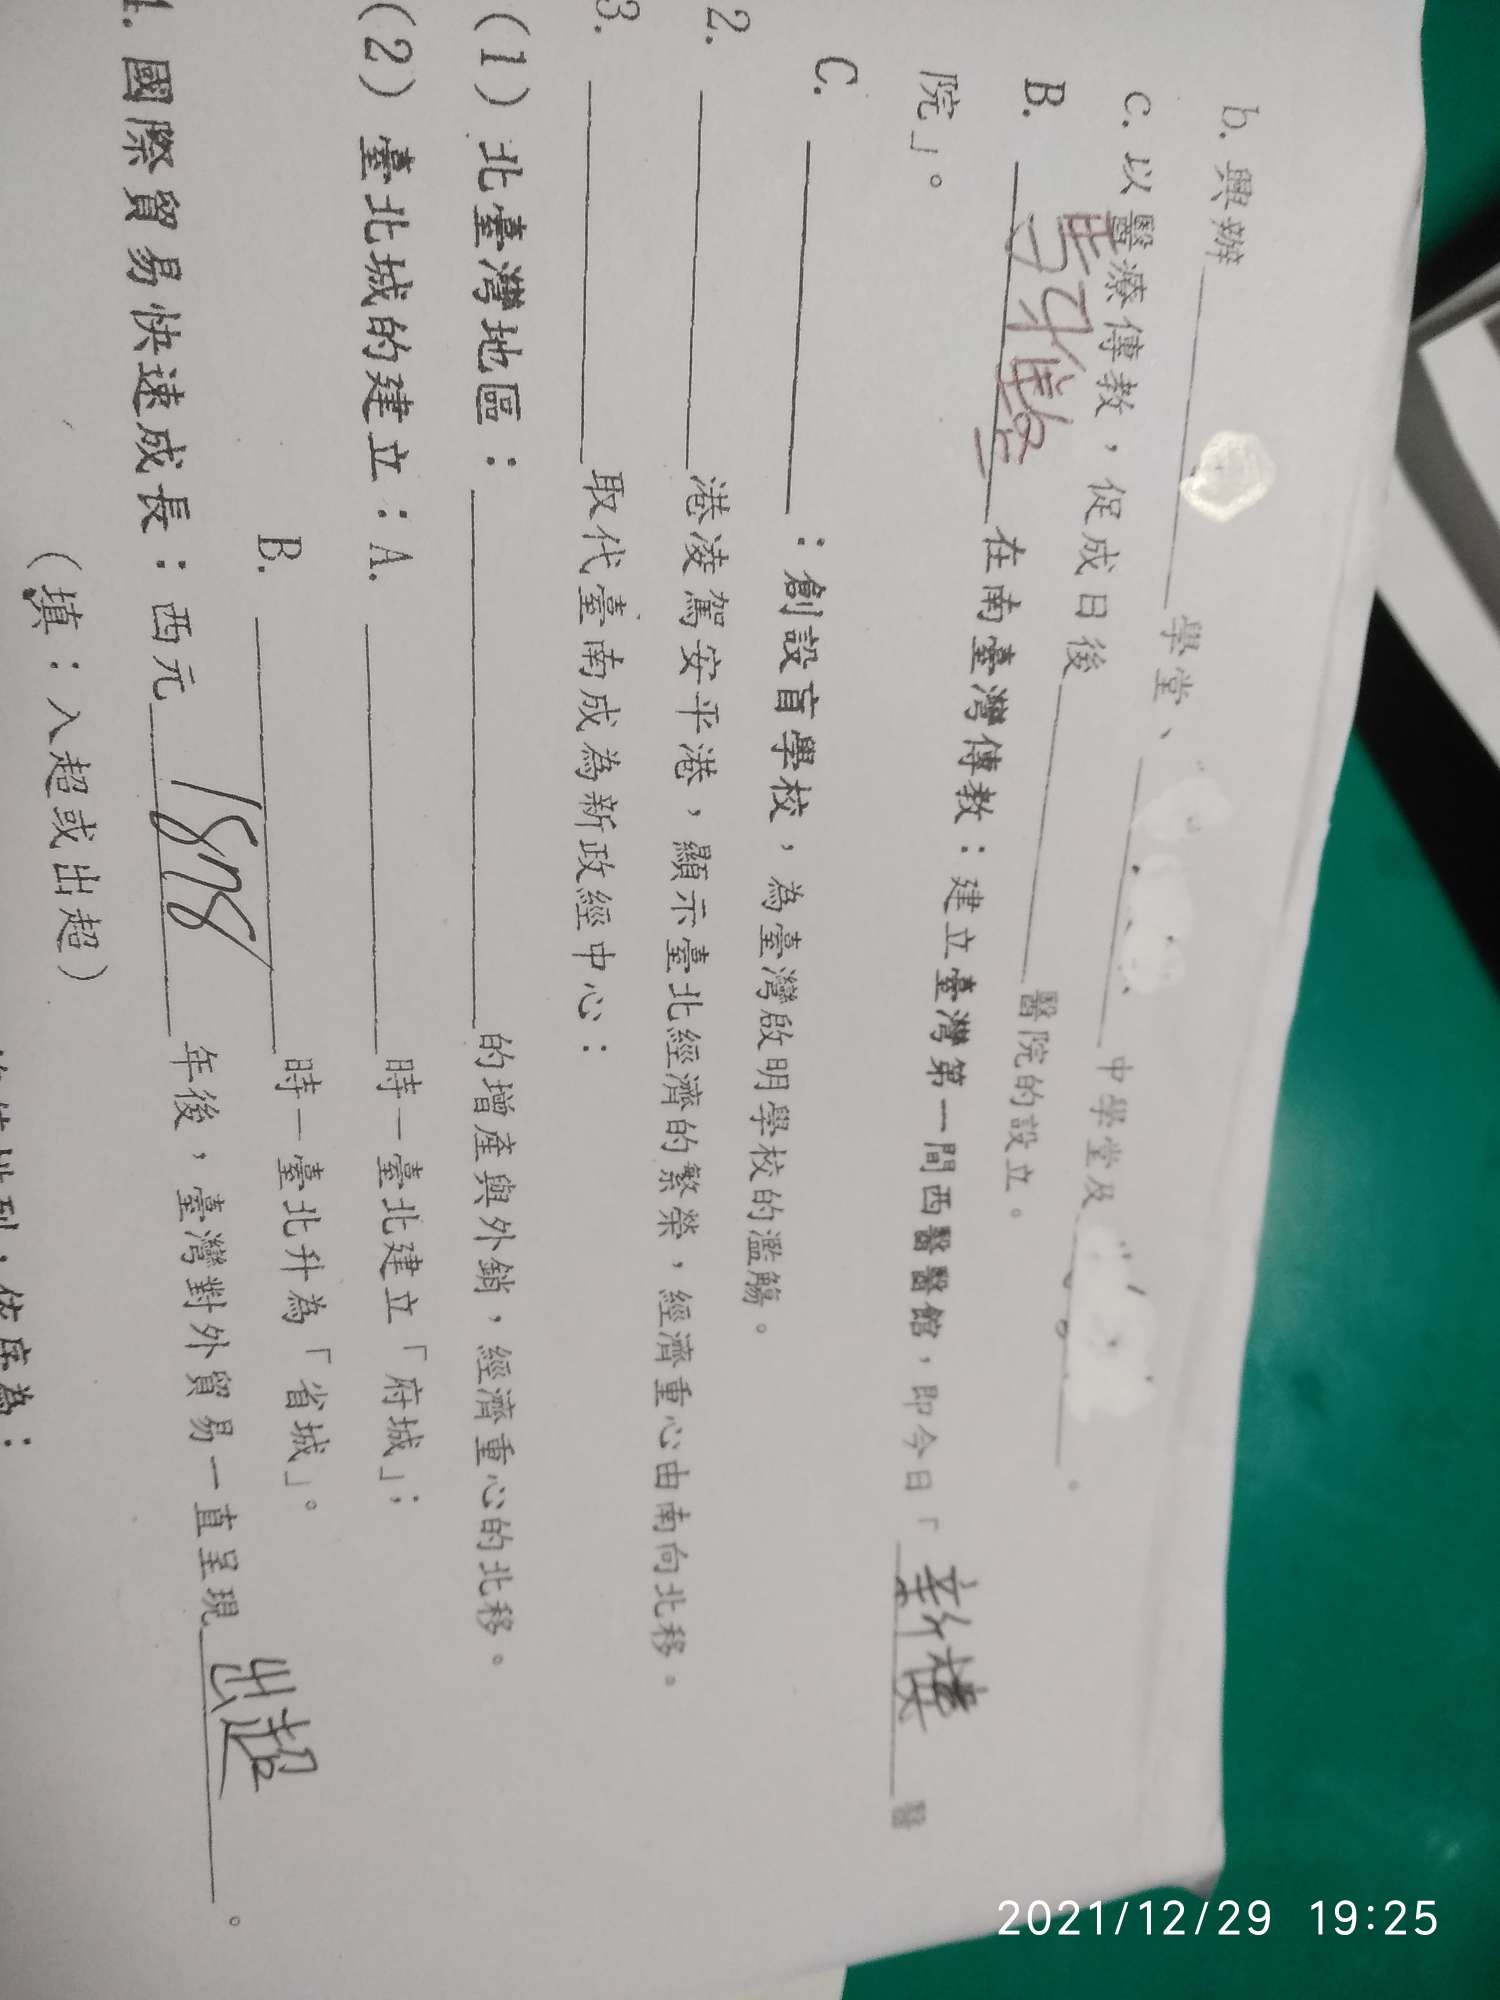 b. 興辦＿＿＿＿學堂、＿＿＿＿中學堂及＿＿＿＿。
c. 以醫療傳教，促成日後＿＿＿＿醫院的設立。
B. 馬雅各在南臺灣傳教：建立臺灣第一間西醫醫館，即今日「新樓醫
院」。
C. ＿＿＿＿：創設盲學校，為臺灣啟明學校的濫觴。
2. ＿＿＿＿港凌駕安平港，顯示臺北經濟的繁榮，經濟重心由南向北移。
3. ＿＿＿＿取代臺南成為新政經中心：
(1) 北臺灣地區：＿＿＿＿的增產與外銷，經濟重心的北移。
(2) 臺北城的建立：A. ＿＿＿＿時－臺北建立「府城」；
B. ＿＿＿＿時－臺北升為「省城」。
4. 國際貿易快速成長：西元1878年後，臺灣對外貿易一直呈現出超。
(填：入超或出超)
依序為：
2021/12/29 19:25